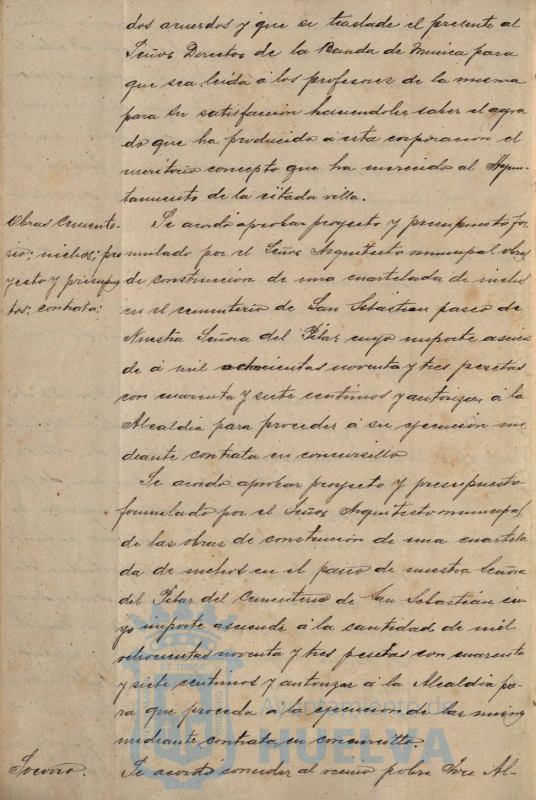 dos acuerdos y que se traslade el presente al
Señor Director de la Banda de Musica para
que sea leida á los profesores de la misma
para su satisfaccion haciendoles saber el agra
do que ha producido á esta corporacion el
meritorio concepto que ha merecido al Ayun-
tamiento de la citada villa.
Obras Cemente-
rio; nichos; pro
yecto y presupues
tos: contrata:
Se acordó aprobar proyecto y presupuesto for
mulado por el Señor Arquitecto municipal obras
de construccion de una cuartelada de nichos
en el cementerio de San Sebastian paseo de
Nuestra Señora del Pilar cuyo importe ascien
de á mil ochocientas noventa y tres pesetas
con cuarenta y siete centimos y autorizar á la
Alcaldia para proceder á su ejecución me
diante contrata en concursillo
Se acordó aprobar proyecto y presupuesto
formulado por el Señor Arquitecto municipal
de las obras de construcion de una cuartela
da de nichos en el paseo de nuestra Señora
del Pilar del Cementerio de San Sebastián cu
yo importe asciende á la cantidad de mil
ochocientas noventa y tres pesetas con cuarenta
y siete centimos y autorizar á la Alcaldia pa
ra que proceda á la ejecucion de las mismas
mediante contrata en concursillo.
Socorro.
Se acordó conceder al vecino pobre José Al-
Ayuntamiento de
HUELVA